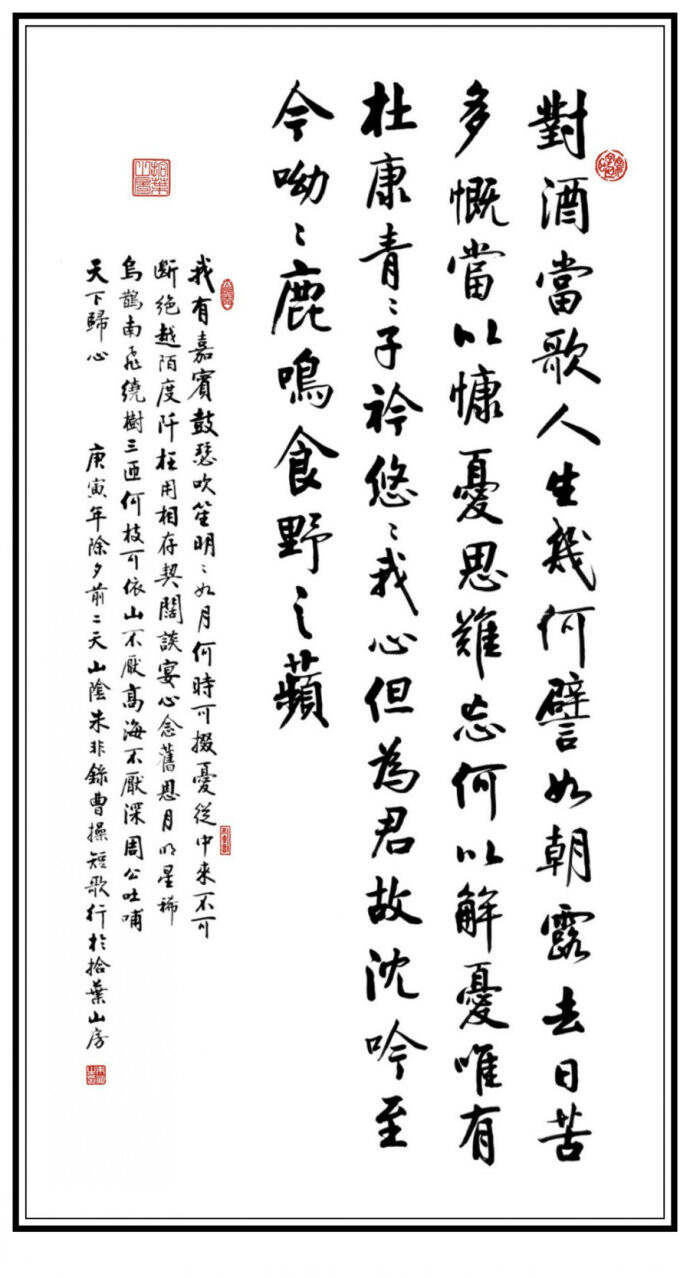 對酒當歌人生幾何譬如朝露去日苦
多慨當以慷憂思難忘何以解憂唯有
杜康青〻子衿悠〻我心但為君故沈吟至
今呦〻鹿鳴食野之蘋
我有嘉賓鼓瑟吹笙明〻如月何時可掇憂從中來不可
斷絕越陌度阡枉用相存契闊談宴心念舊恩月明星稀
烏鵲南飛繞樹三匝何枝可依山不厭高海不厭深周公吐哺
天下歸心
庚寅年除夕前二天山陰朱非錄曹操短歌行於拾葉山房